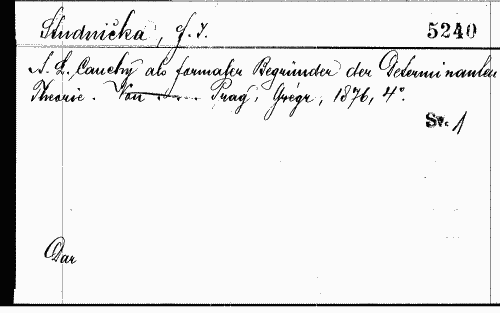 Studnička, F. J.
5240
A. L. Cauchy als formaler Begründer der Determinanten
Theorie. Von ...... Prag, Grégr, 1876, 4°.
Sv. 1
Dar